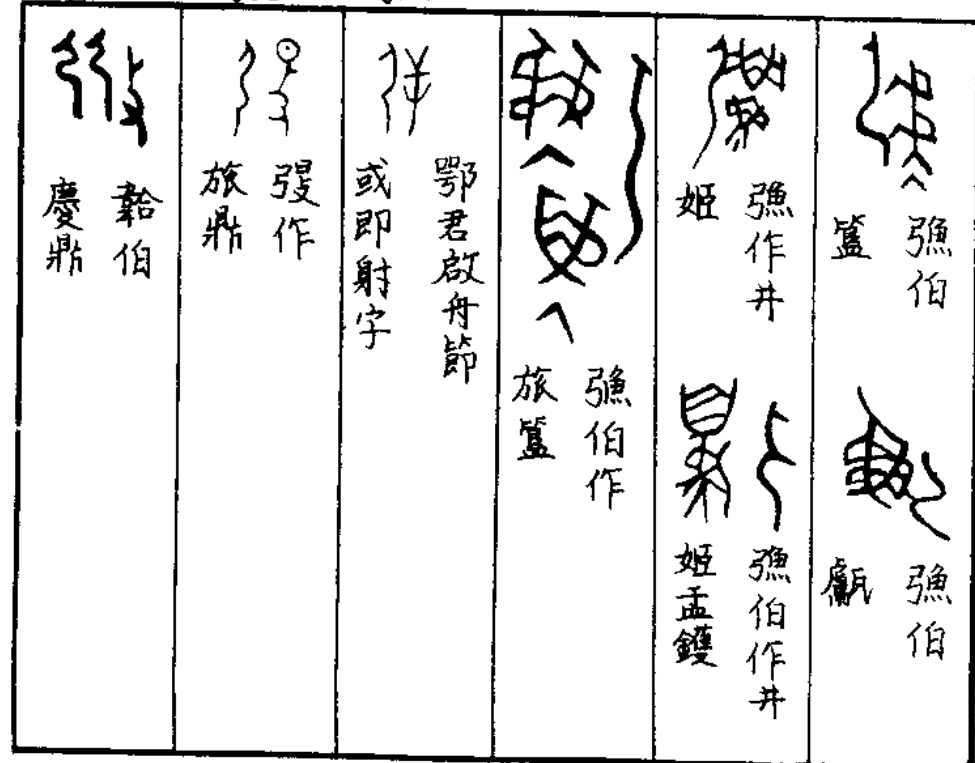 𢐗伯
簋
𢐗伯
甗
𢐗作井
姬
𢐗伯作井
姬盂鑊
𢐗伯作
旅簋
鄂君啟舟節
或即射字
作
旅鼎
韐伯
慶鼎